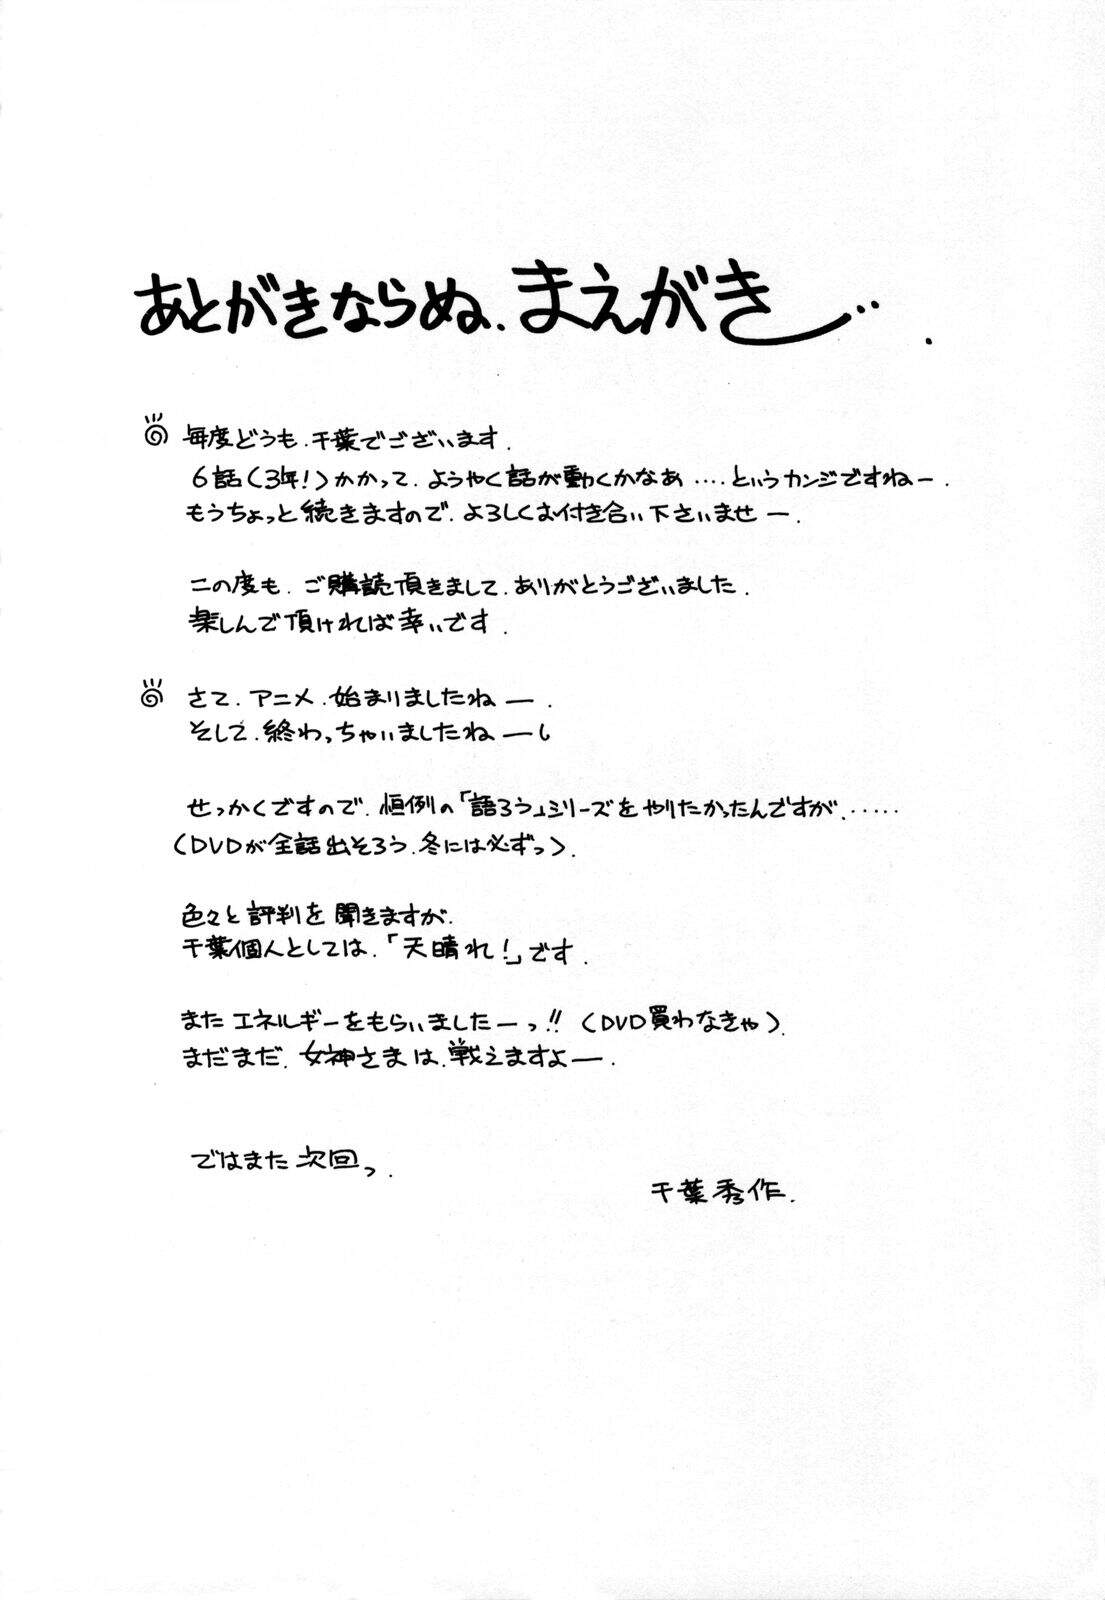 あとがきならぬ、まえがき……
毎度どうも.千葉でございます.
6話(3年!)かかって.ようやく話が動くかなあ....というカンジですねー.
もうちょっと続きますので.よろしくお付き合い下さいませー.
この度も.ご購読頂きまして.ありがとうございました.
楽しんで頂ければ幸いです.
さて.アニメ.始まりましたねー.
そして.終わっちゃいましたねー
せっかくですので.恒例の「語ろう」シリーズをやりたかったんですが......
(DVDが全話出そろう.冬には必ずっ).
色々と評判を聞きますが.
千葉個人としては.「天晴れ!」です.
またエネルギーをもらいましたーっ!!(DVD買わなきゃ).
まだまだ.女神さまは.戦えますよー.
ではまた次回っ.
千葉秀作.